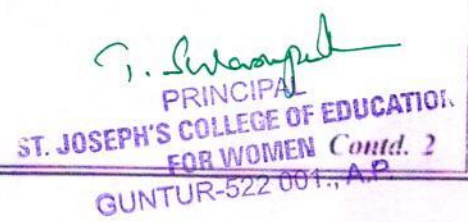 PRINCIPAL
ST. JOSEPH'S COLLEGE OF EDUCATION
FOR WOMEN Contd. 2
GUNTUR-522 001., A.P.